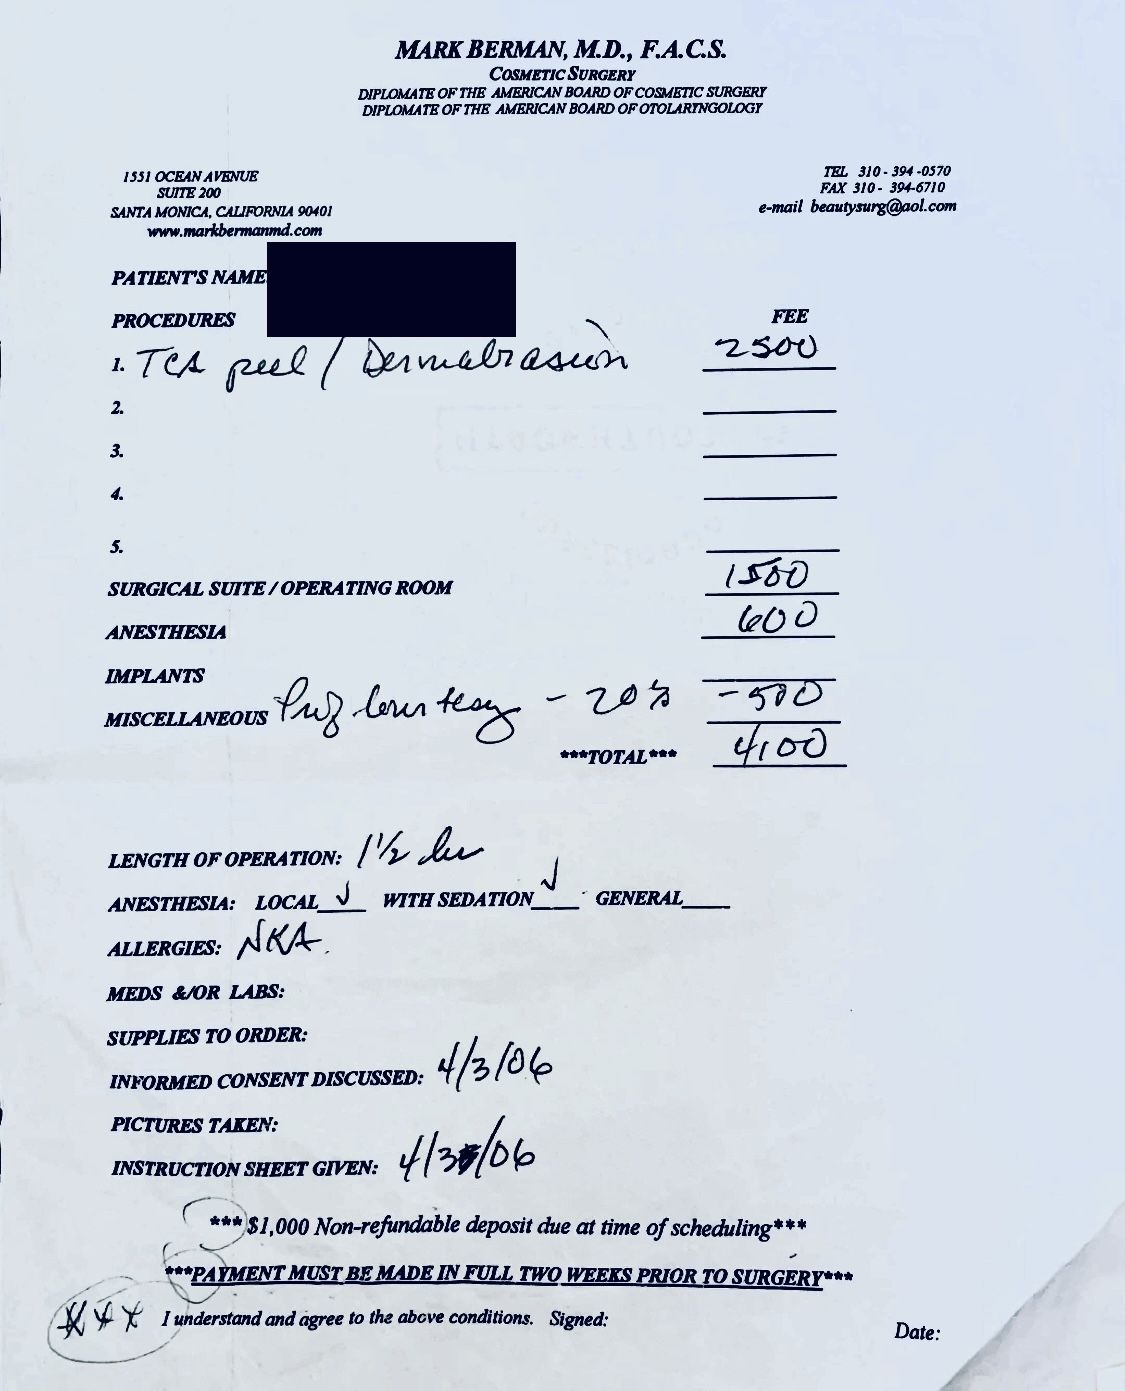 MARK BERMAN, M.D., F.A.C.S.
COSMETIC SURGERY
DIPLOMATE OF THE AMERICAN BOARD OF COSMETIC SURGERY
DIPLOMATE OF THE AMERICAN BOARD OF OTOLARYNGOLOGY
1551 OCEAN AVENUE
SUITE 200
SANTA MONICA, CALIFORNIA 90401
www.markbermanmd.com
TEL 310-394-0570
FAX 310-394-6710
e-mail beautysurg@aol.com
PATIENT'S NAME
PROCEDURES FEE
1. TCA peel / Dermabrasion 2500
2.
3.
4.
5.
SURGICAL SUITE / OPERATING ROOM 1500
ANESTHESIA 600
IMPLANTS
MISCELLANEOUS courtesy - 20% -500
***TOTAL*** 4100
LENGTH OF OPERATION: 1 1/2 hr
ANESTHESIA: LOCAL ✓ WITH SEDATION ✓ GENERAL
ALLERGIES: NKA.
MEDS &/OR LABS:
SUPPLIES TO ORDER:
INFORMED CONSENT DISCUSSED: 4/3/06
PICTURES TAKEN:
INSTRUCTION SHEET GIVEN: 4/3/06
***$1,000 Non-refundable deposit due at time of scheduling***
***PAYMENT MUST BE MADE IN FULL TWO WEEKS PRIOR TO SURGERY***
*** I understand and agree to the above conditions. Signed:
Date: